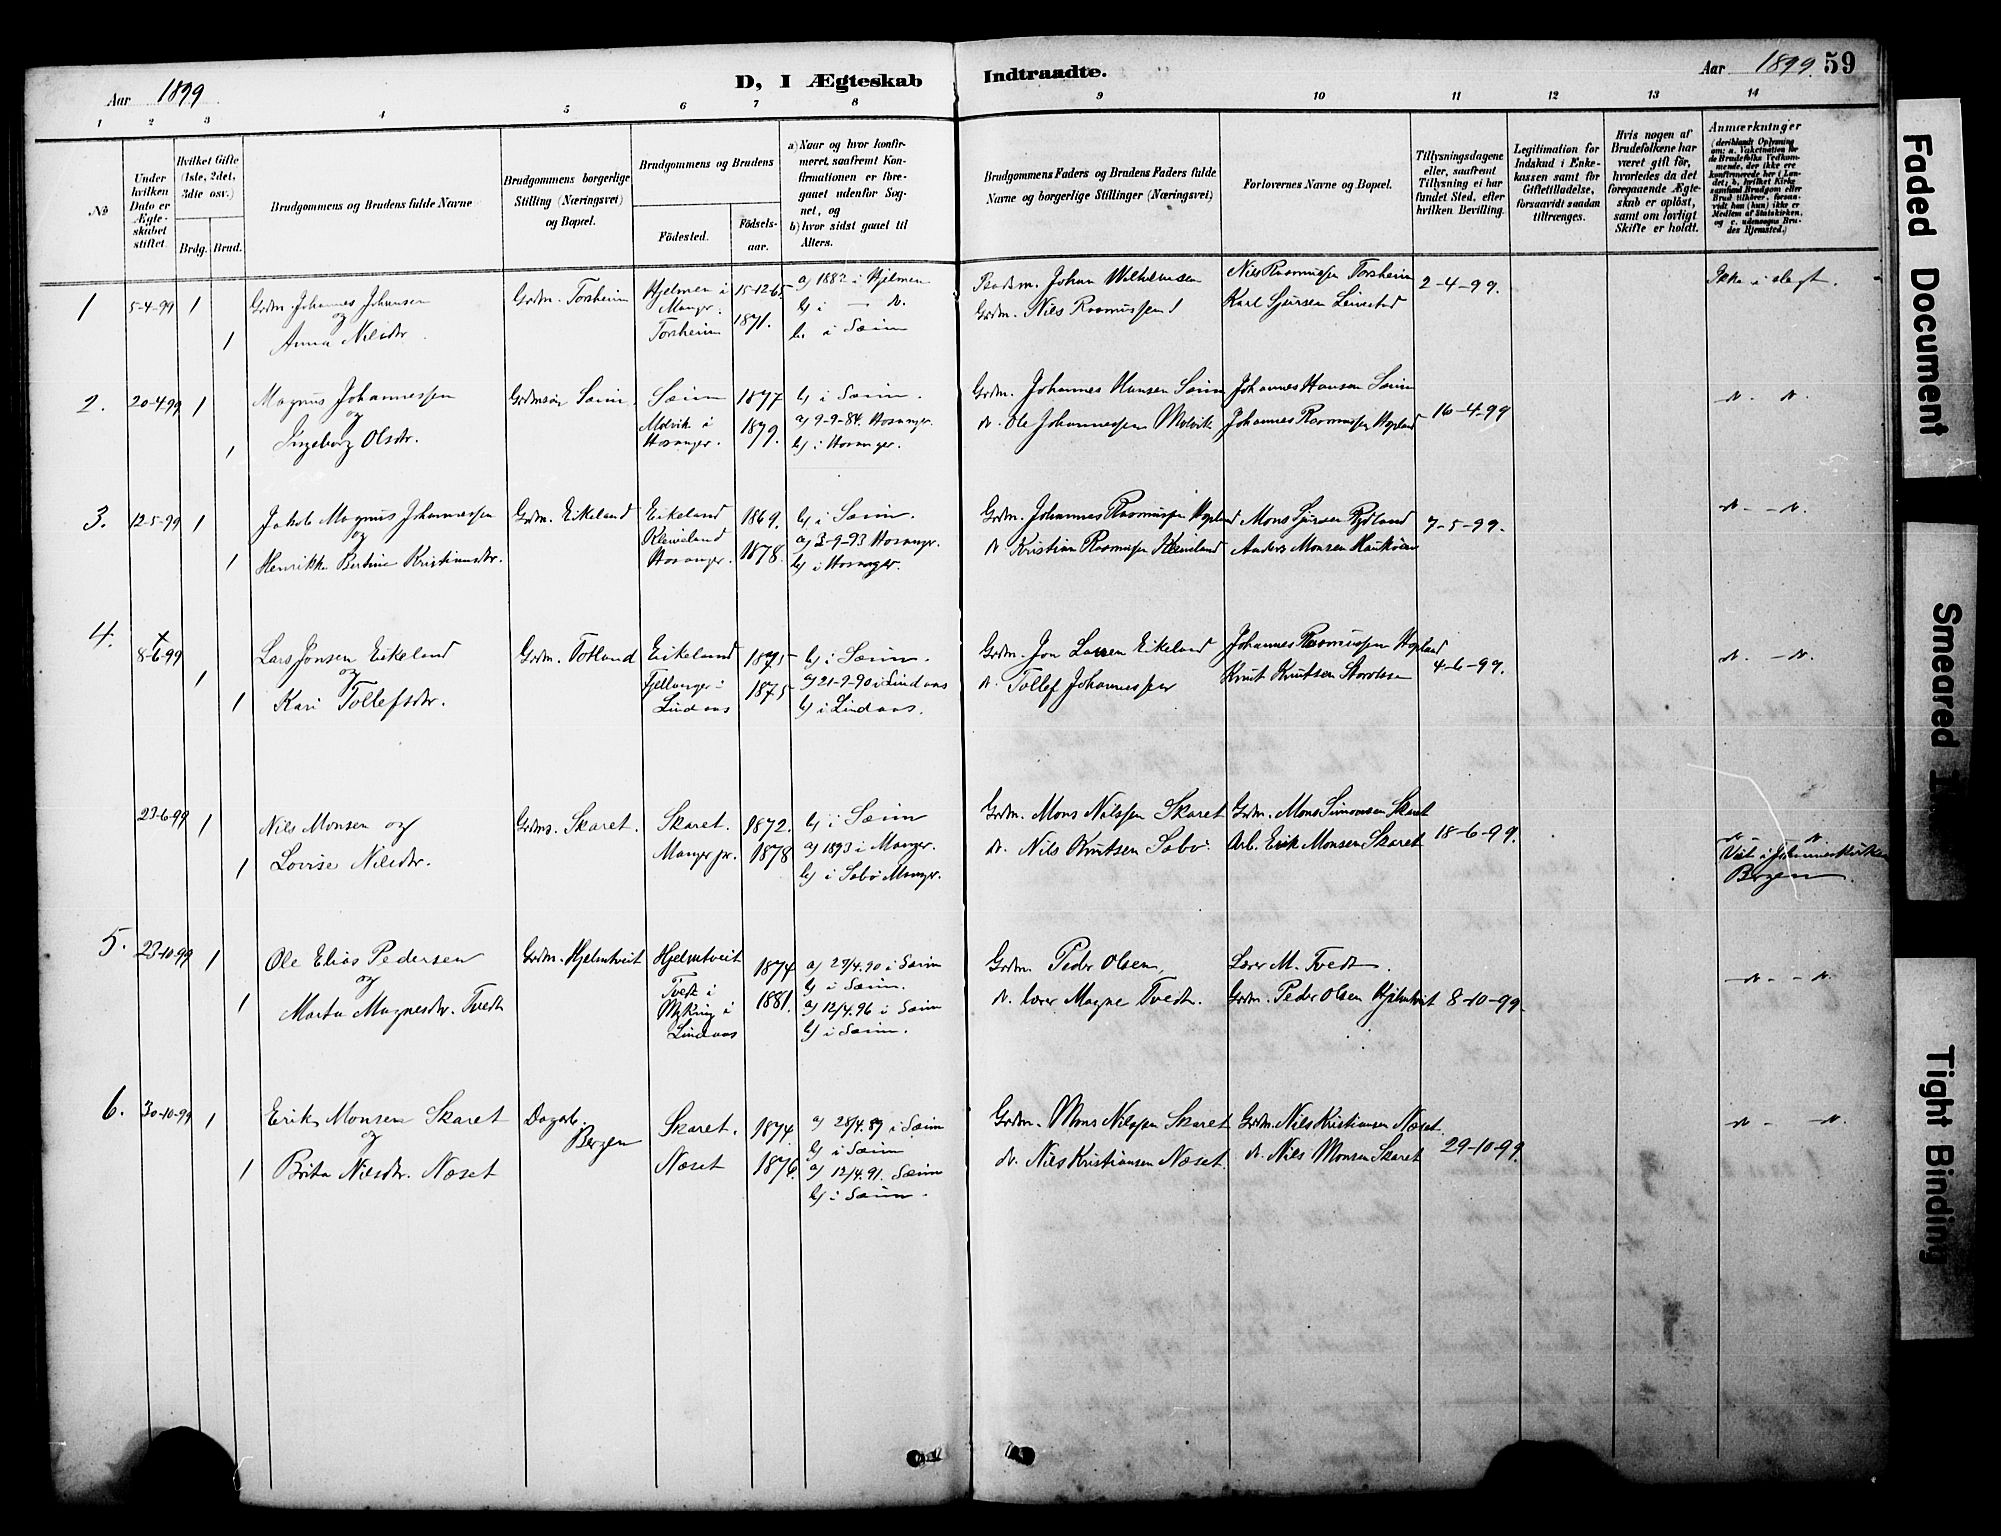 Aar 1899
D, I Ægteskab Indtraadte.
Aar 1899. 59
1 2 3 4 5 6 7 8 9 10 11 12 13 14
No
Under hvilken Dato er Ægteskabet stiftet.
Hvilket Gifte (1ste, 2det, 3dte osv.)
Brdg. Brud.
Brudgommens og Brudens fulde Navne
Brudgommens borgerlige Stilling (Næringsvei) og Bopæl.
Brudgommens og Brudens
Födested.
Födselsaar.
a) Naar og hvor konfirmeret, saafremt Konfirmationen er foregaaet udenfor Sognet, og
b) hvor sidst gaaet til Alters.
Brudgommens Faders og Brudens Faders fulde Navne og borgerlige Stillinger (Næringsvei)
Forlovernes Navne og Bopæl.
Tillysningsdagene eller, saafremt Tillysning ei har fundet Sted, efter hvilken Bevilling.
Legitimation for Indskud i Enkekassen samt for Giftetilladelse, forsaavidt saadan tiltrænges.
Hvis nogen af Brudefolkene har været gift för, hvorledes da det foregaaende Ægteskab er oplöst, samt om lovligt Skifte er holdt.
Anmærkninger
1 5-4-99 1 Grdm. Johannes Johansen Grdm. Torsheim Hjelmen i Manger. 15-12-65. a) 1882 i Hjelmen
og
1 Anna Nilsdtr. Torsheim 1871. b) i Sæim
Johan Wilhelmsen Nils Rasmussen Torsheim 2-4-99. Ikke i slegt.
Grdm. Nils Rasmussen Karl Sjursen Leivestad
2. 20-4-99 1 Magnus Johannessen Grdmsön Sæim. Sæim 1877 b) i Sæim.
og
1 Ingeborg Olsdtr. Molvik i Hosanger. 1879. a) 9-9-84. Hosanger.
b) i Hosanger.
Grdm. Johannes Hansen Sæim Johannes Hansen Sæim 16-4-99
Ole Johannessen Molvik Johannes Rasmussen Hopland
3. 12-5-99 1 Jakob Magnus Johannessen Grdm. Eikeland Eikeland 1869. b) i Sæim.
og
1 Henrikke Bertine Kristiansdtr. Kleiveland Hosanger. 1878. a) 3-9-93 Hosanger.
b) i Hosanger.
Grdm. Johannes Rasmussen Hopland Mons Sjursen Rydland 7-5-99.
Kristian Rasmussen Kleiveland Anders Monsen
4. 8-6-99 1 Lars Jonsen Eikeland Grdm. Totland Eikeland 1875 b) i Sæim.
og
1 Kari Tollefsdtr. Fjellanger i Lindaas 1875 a) 21-9-90 i Lindaas
b) i Lindaas.
Grdm. Jon Larsen Eikeland Johannes Rasmussen Hopland 4-6-99.
Tollef Johannessen Knut Knutsen
23-6-99 1 Nils Monsen og Grdms. Skaret. Skaret. 1872. b) i Sæim
1 Lovise Nilsdtr. Manger pr. 1878 a) 1893 i Manger.
b) i Sabö Manger.
Grdm. Mons Nilssen Skaret Grdm. Mons Simonsen Skaret 18-6-99.
Nils Knutsen Sabö. Arb. Erik Monsen Skaret
Viet i Johanneskirken Bergen.
5. 23-10-99 1 Ole Elias Pedersen Grdm. Hjelmtveit Hjelmtveit 1874 a) 27/4.90 i Sæim
og b) i Sæim.
1 Marta Magnesdtr. Tvedt Tvedt i Myking i Lindaas 1881. a) 12/4.96 i Sæim
b) i Sæim.
Grdm. Peder Olsen Lærer M. Tvedt.
Lærer Magne Tvedt. Grdm. Peder Olsen Hjelmtveit 8-10-99.
6. 30-10-99 1 Erik Monsen Skaret Dagarb. Bergen Skaret. 1874. a) 28/4.89 i Sæim
og b) i Sæim
1 Brita Nilsdtr. Næset Næset 1876. a) 12/4.91. Sæim
b) i Sæim.
Grdm. Mons Nilssen Skaret Grdm. Nils Kristiansen Næset 29-10-99.
Nils Kristiansen Næset. Nils Monsen Skaret
Faded Document
Smeared
Tight Binding